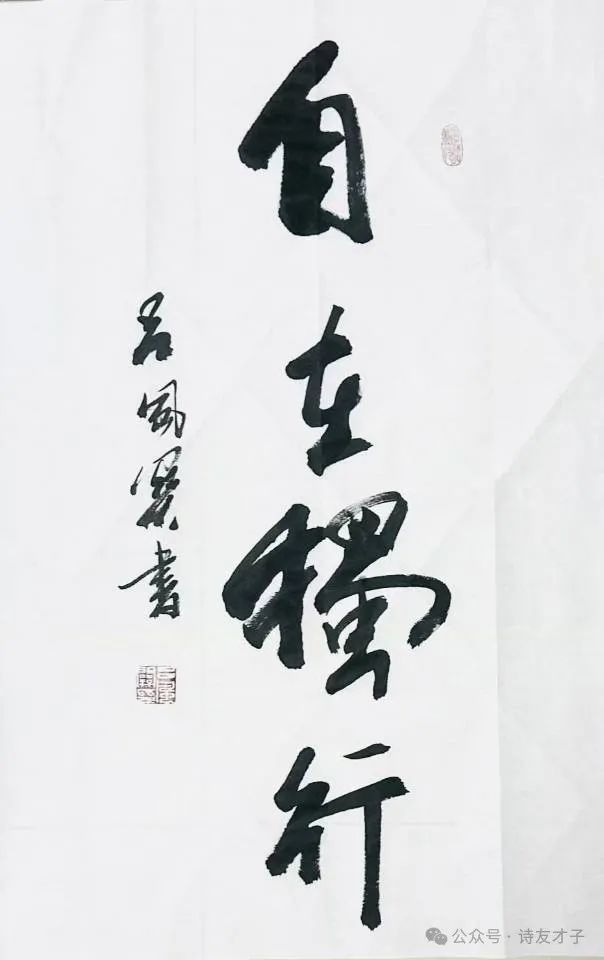 自在獨行
吕風翼書
公众号·诗友才子